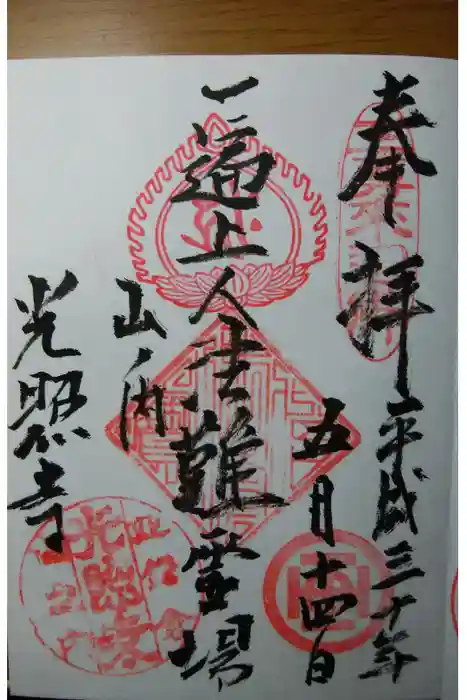 奉拝
平成三十年
五月十四日
一遍上人法難霊場
山ノ内
光照寺